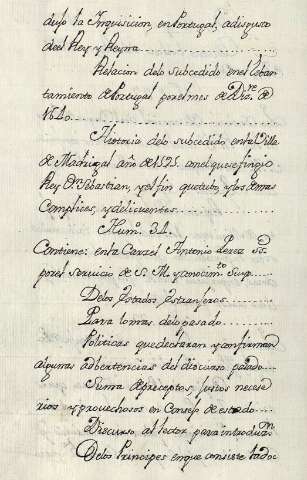 delo la Inquisicion, en Portugal, a disgusto
del Rey y Reyna
Relacion delo subcedido en el leban
tamiento de Portugal por el mes de Dizre. de
1640
Historia delo subcedido en la Villa
de Madrigal año de 1595. en el que se fingio
Rey Dn. Sebastian, y el fin que tubo, y los demas
Complices, y delicuentes
Numo. 34.
Contiene: en la Carzel Antonio Perez
por el servicio de S. M. y conocimto. suyo
Delos Estados Estranjeros
Para lo mas delo pasado
Politicas que declaran y confirman
algunas adbertencias del discurso pasado
Suma de preceptos, justos nece
rios y provechosos en Consejo de estado
Discurso al lector para introduzn.
Delos Principes en que consiste la doc